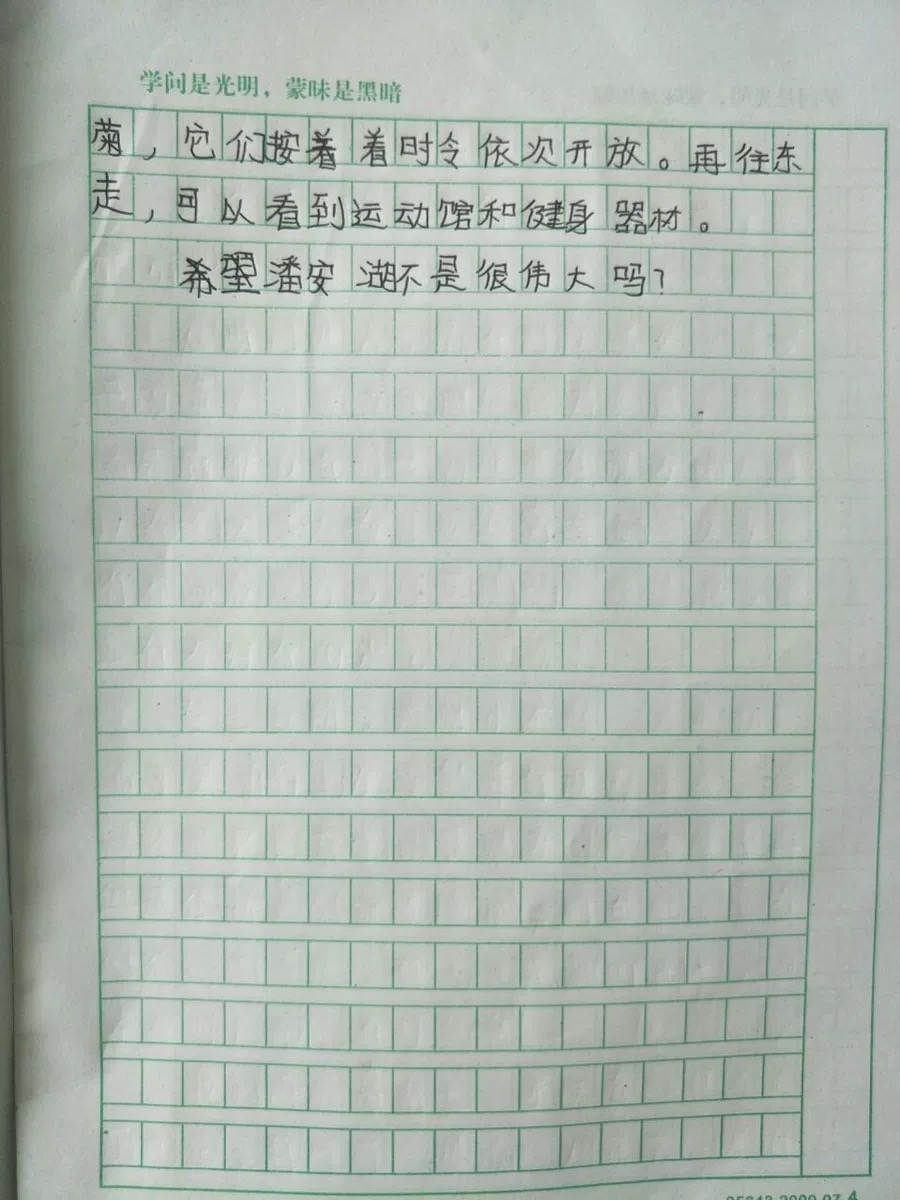 学问是光明，蒙昧是黑暗
菊，它们按着着时令依次开放。再往东
走，可以看到运动馆和健身器材。
希望潘安湖不是很伟大吗？